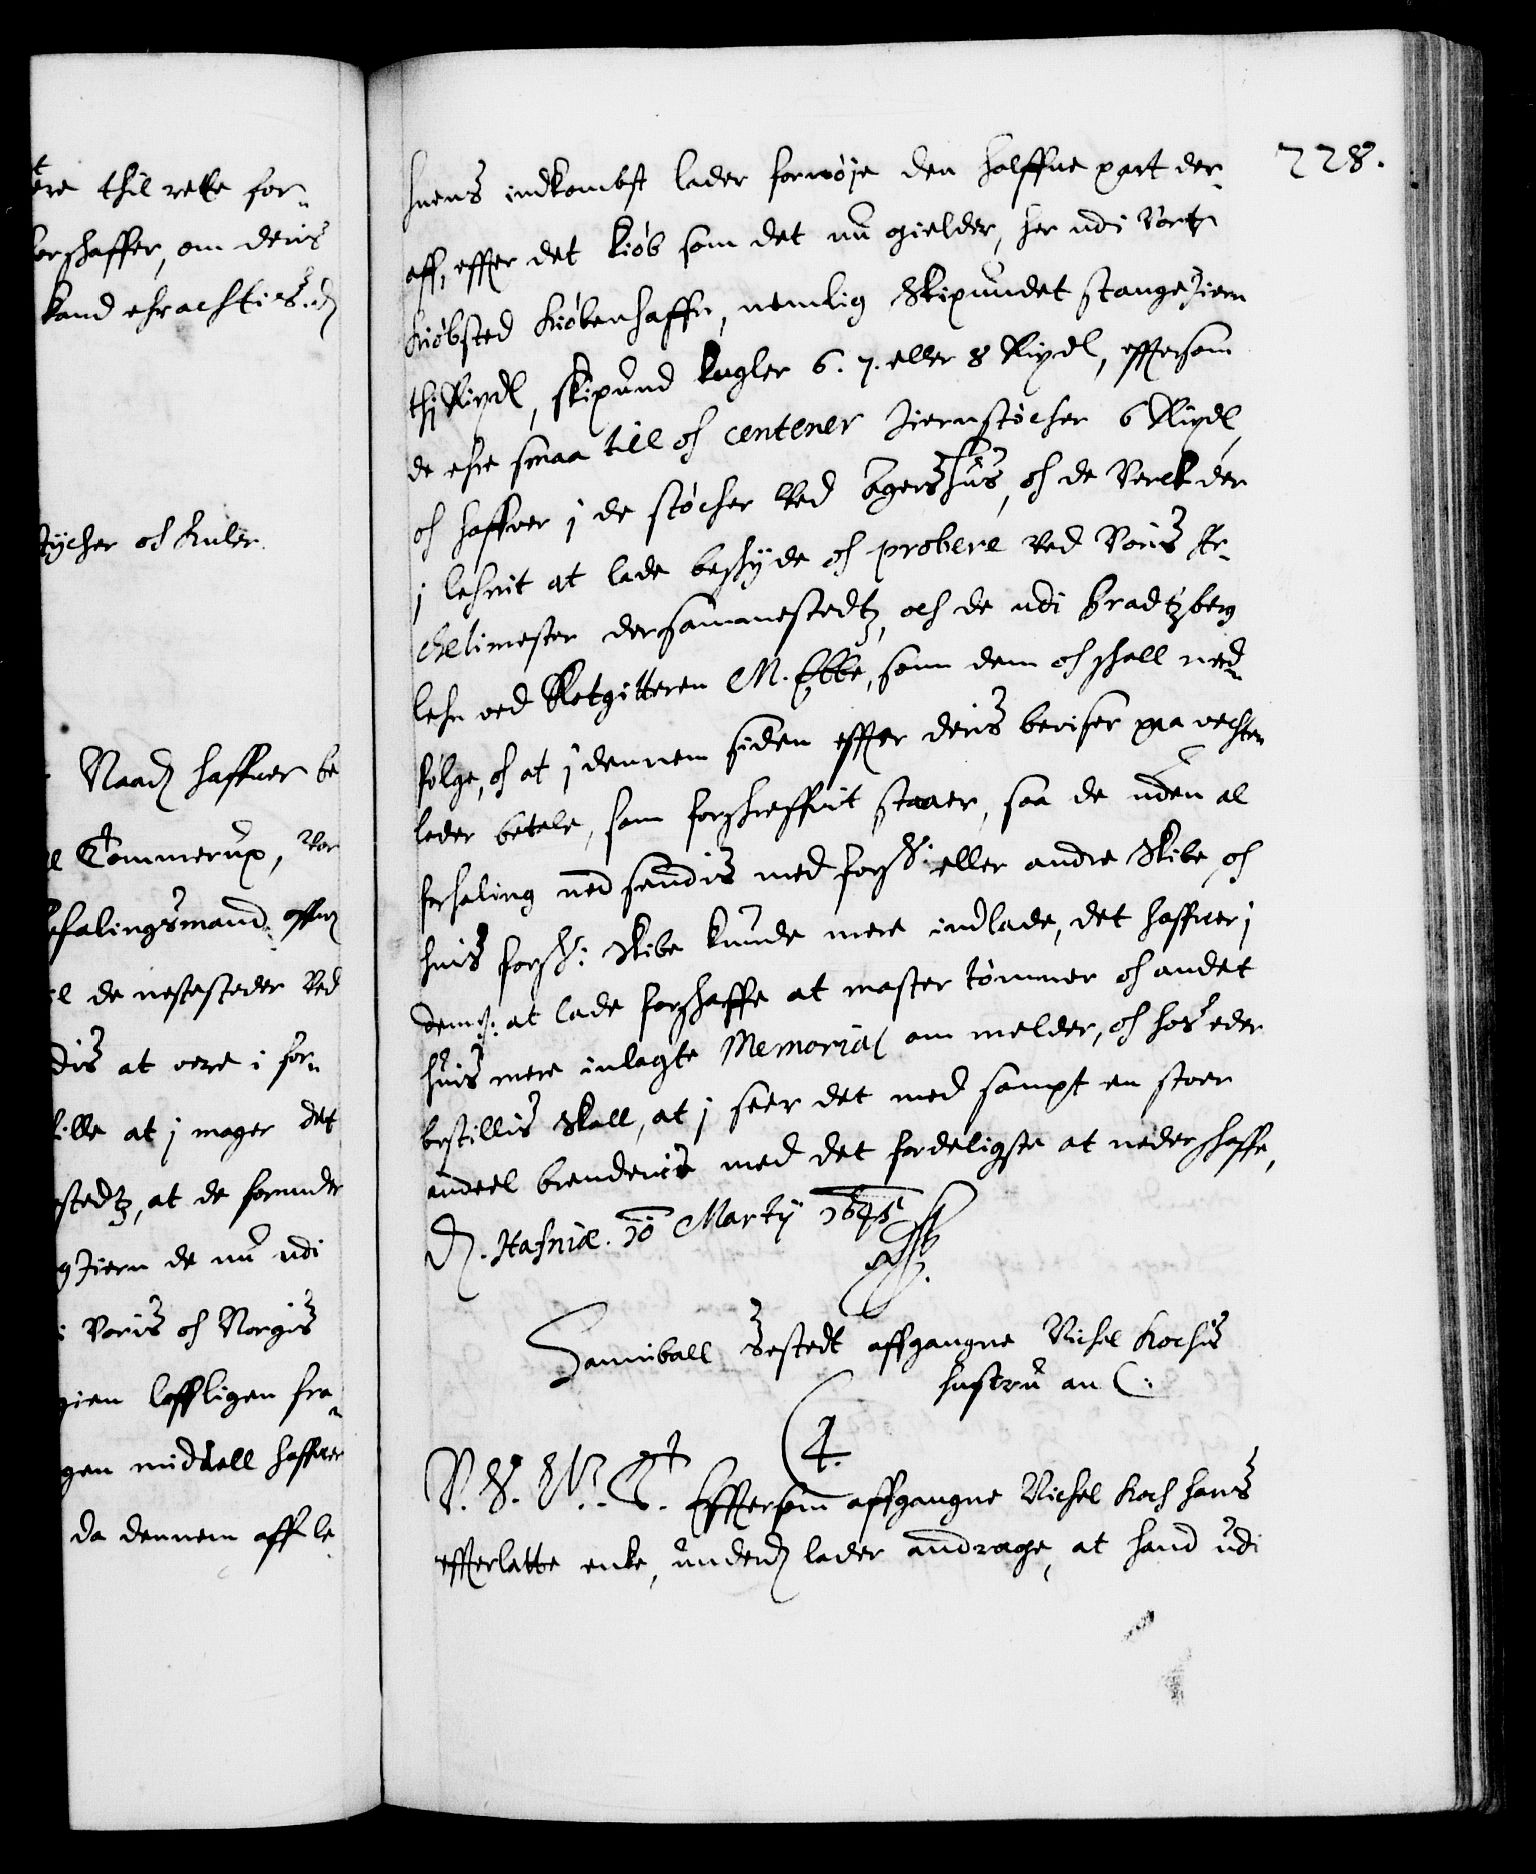 ere thil rette for¬
forschaffer, om deris
kand ehrachtis. D
stycher och kuler.
Naad haffuer be
Tommerup, Vor
befalingsmand offuer
de nestesteder Ved
dis at vere i for¬
ville at j mager det
stedtz, at de forunder
Jiern de nu udi
Voris och Norgis
gien løffligen fra¬
gen middell haffuer
da dennem aff le
728.
huens indkombst lader fornøje den halffue part der¬
aff, effter det kiøb som det nu gielder, her udi Vort
Kiøbsted Kiøbenhaffn, nemlig Skipundet stangejiern
thj Rixdl, skipund kugler 6. 7. eller 8 Rixdl, efftersom
de ehre smaa till och centener Jiernstøcher 6 Rixdl,
och haffuer j de støcher Ved Agershus, och de Verck der
j lehnit at lade beschyde och probere Ved Voris Ar¬
chelimester dersammestedtz, och de udi Bradtzberg
lehn ved Rotgitteren M. Ebbe, som dem och schall ned¬
følge, och at j dennem siden effter deris beviser paa vechten
lader betale, som forschreffuit staaer, saa de uden al
forhaling ned sendis med forsch: eller andre Skibe, och
huis forsch: Skibe kunde mere indlade, det haffuer j
dem at lade forschaffe at master tømmer och andet
huis mere inlagte Memorial om melder, och hos eder
bestillis skall, at j seer det med sampt en stoer
andeel brendeuis med det fordeligste at nederschaffe,
D. Hafniæ. 10 Martij 1645
Hanniball Sestedt affgangne Michel Kochis
hustru an C:
C 4.
V. S. G. T. Efftersom affgangne Michel Koch hans
effterlatte enke, underd lader andrage, at hand udi